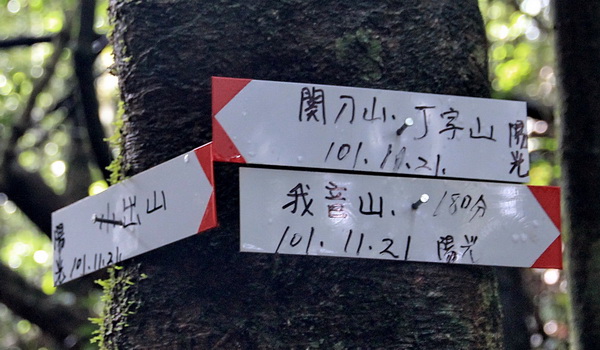 関刀山. 丁字山
101.11.21.
陽光
出山
陽光
101.11.21
我音山. 180分
101.11.21 陽光